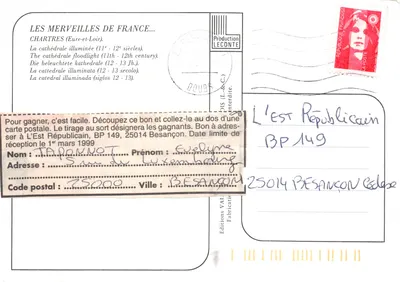 LES MERVEILLES DE FRANCE...
CHARTRES (Eure-et-Loir).
La cathédrale illuminée (11e - 12e siècles).
The cathedral floodlight (11th - 12th century).
Die beleuchtete kathedrale (12 - 13 Jh.).
La cattedrale illuminata (12 - 13 secolo).
La catedral illuminada (siglos 12 - 13).
Production
LECONTE
Pour gagner, c'est facile. Découpez ce bon et collez-le au dos d'une
carte postale. Le tirage au sort désignera les gagnants. Bon à adres-
ser à L'Est Républicain, BP 149, 25014 Besançon. Date limite de
réception le 1er mars 1999
Nom : TADONNOT Prénom : Evelyne
Adresse : 15 rue du Luxembourg
Code postal : 25000 Ville : BESANÇON
L'EST Républicain
BP 149
25014 BESANÇON Cedex
Editions